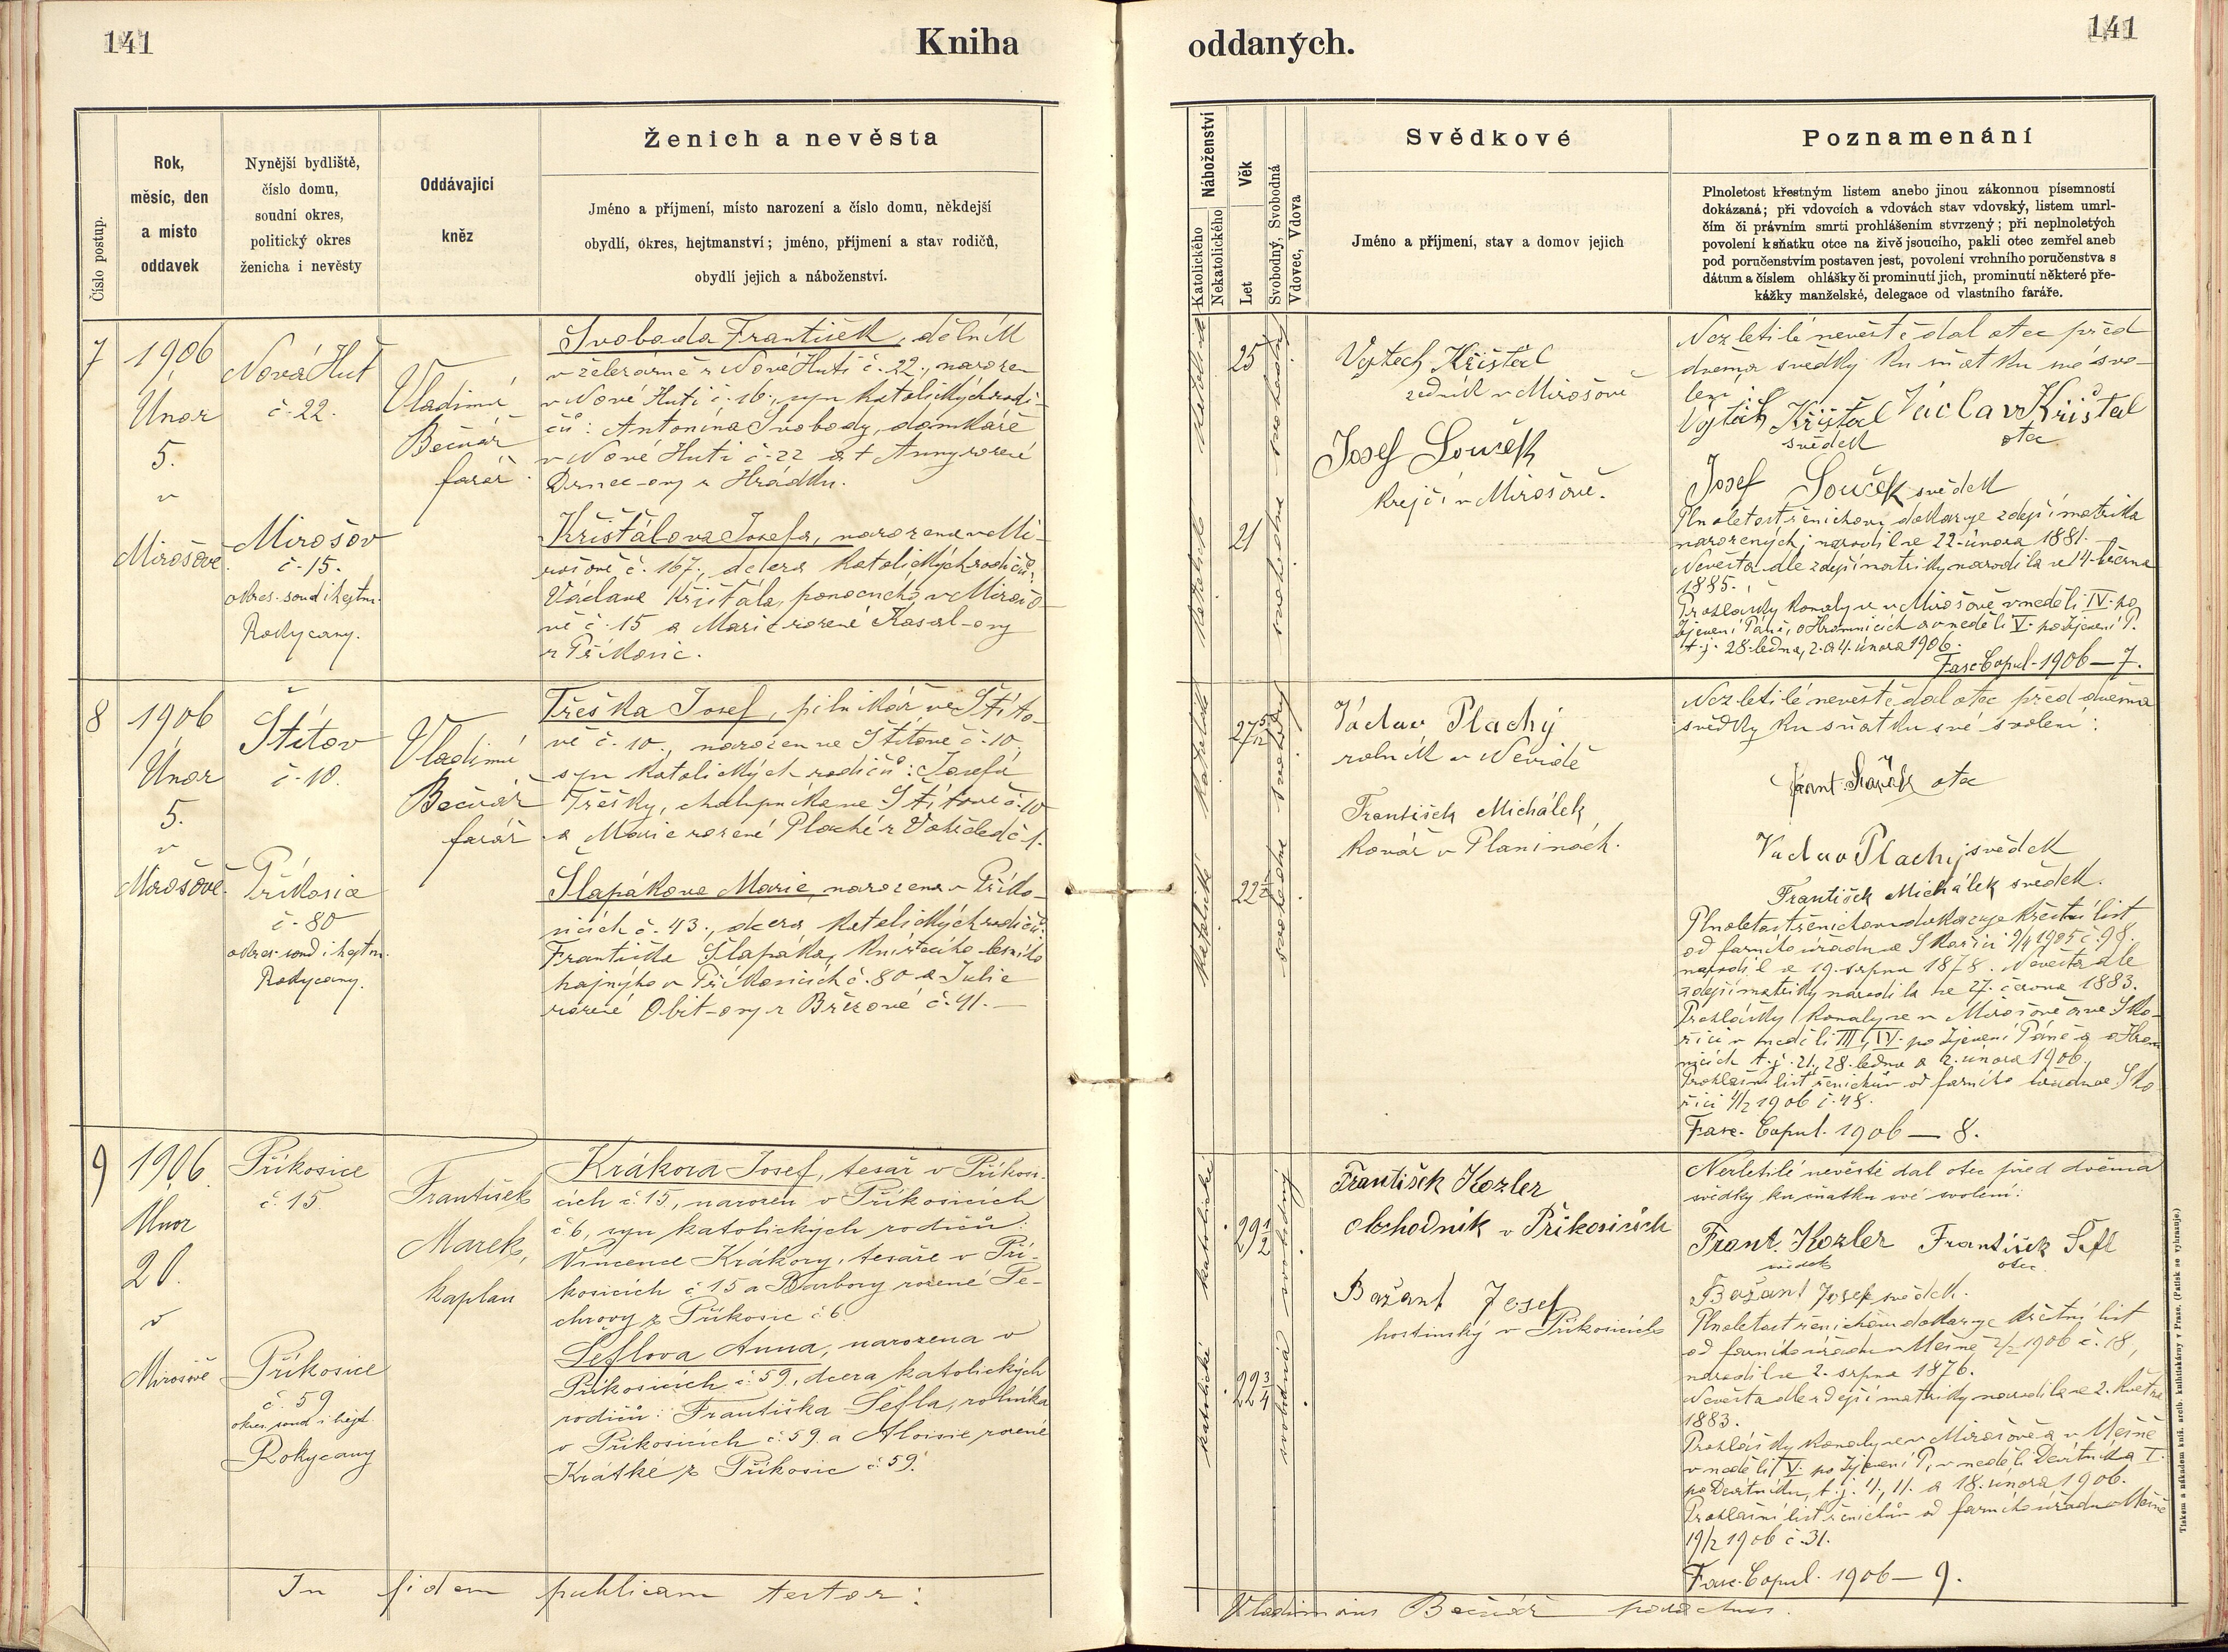 141
Kniha
oddaných.
141
Číslo postup.
Rok,
měsíc, den
a místo
oddavek
Nynější bydliště,
číslo domu,
soudní okres,
politický okres
ženicha i nevěsty
Oddávající
kněz
Ženich a nevěsta
Jméno a příjmení, místo narození a číslo domu, někdejší
obydlí, okres, hejtmanství; jméno, příjmení a stav rodičů,
obydlí jejich a náboženství.
Náboženství
Katolického
Nekatolického
Věk
Let
Svobodný, Svobodná
Vdovec, Vdova
Svědkové
Jméno a příjmení, stav a domov jejich
Poznamenání
Plnoletost křestným listem anebo jinou zákonnou písemností
dokázaná; při vdovcích a vdovách stav vdovský, listem umrl-
čím či právním smrti prohlášením stvrzený; při neplnoletých
povolení k sňatku otce na živě jsoucího, pakli otec zemřel aneb
pod poručenstvím postaven jest, povolení vrchního poručenstva s
dátum a číslem ohlášky či prominutí jich, prominutí některé pře-
kážky manželské, delegace od vlastního faráře.
7
1906
Únor
5.
v
Mirošově
Nová Huť
č. 22.
Mirošov
č. 15.
okres. soud i hejtm.
Rokycany.
Vladimír
Bečvář
farář
Svoboda František, dělník
v železárně v Nové Huti č. 22., narozen
v Nové Huti č. 16., syn katolických rodi-
čů: Antonína Svobody, domkáře
v Nové Huti č. 22 a † Anny rozené
Drnec-ovy z Hrádku.
Křišťálova Josefa, narozena v Mi-
rošově č. 167., dcera katolických rodičů:
Václava Křišťála, pomocného v Mirošo-
vě č. 15 a Marie rozené Kasal-ovy
z Příkosic.
katolické
katolické
25
21
svobodný
svobodná
Vojtech Křišťál
zedník v Mirošově
Josef Souček
krejčí v Mirošově.
Nezletilé nevěstě dal otec před
dvěma svědky ku sňatku své svo-
lení
Vojtěch Křišťál Václav Křišťál
svědek otec
Josef Souček svědek
Plnoletost ženichovu dokazuje zdejší matrika
narozených; narodil se 22. února 1881.
Nevěsta dle zdejší matriky narodila se 14. března
1885.
Prohlášky konaly se v Mirošově v neděli IV. po
Zjevení Páně, o Hromnicích a v neděli V. po Zjevení P.
t. j. 28. ledna, 2. a 4. února 1906.
Fasc. Copul. 1906 — 7.
8
1906
Únor
5.
v
Mirošově
Štítov
č. 10.
Příkosice
č. 80
okres. soud i hejtm.
Rokycany.
Vladimír
Bečvář
farář
Třeška Josef, pilnikář ve Štíto-
vě č. 10., narozen ve Štítově č. 10.
syn katolických rodičů: Josefa
Třešky, chalupníka ve Štítově č. 10
a Marie rozené Plaché z Vohřled č. 1.
Slapákova Marie, narozena v Příko-
sicích č. 43., dcera katolických rodičů:
Františka Slapáka, knížecího lesního
hajného v Příkosicích č. 80 a Julie
rozené Obit-ovy z Březové č. 41. —
katolické
katolické
27 5/12
22 1/2
svobodný
svobodná
Václav Plachý
rolník v Nevidě
František Michálek
kovář v Planinách.
Nezletilé nevěstě dal otec před dvěma
svědky ku sňatku své svolení:
Frant. Slapák otec
Václav Plachý svědek
František Michálek svědek.
Plnoletost ženichovu dokazuje křestní list
od farního úřadu ve Skořici 9/4 1905 č. 98
narodil se 19. srpna 1878. Nevěsta dle
zdejší matriky narodila se 27. června 1883.
Prohlášky konaly se v Mirošově a ve Sko-
řici v neděli III., IV. po Zjevení Páně a o Hrom
nicích t. j. 21., 28. ledna a 2. února 1906.
Prohlašní list ženichův od farního úřadu ve Sko-
řici 4/2 1906 č. 48.
Fasc. Copul. 1906 — 8.
9
1906.
Únor
20.
v
Mirošově
Příkosice
č. 15.
Příkosice
č. 59
okres. soud i hejt.
Rokycany
František
Marek,
kaplan
Krákora Josef, tesař v Příkosi-
cích č. 15., narozen v Příkosicích
č. 6, syn katolických rodičů:
Vincence Krákory, tesaře v Pří-
kosicích č. 15 a Barbory rozené Pe-
chrovy z Příkosic č. 6.
Šeflova Anna, narozena v
Příkosicích č. 59., dcera katolických
rodičů: Františka Šefla, rolníka
v Příkosicích č. 59. a Aloisie rozené
Krátké z Příkosic č. 59.
katolické
katolické
29 1/2
22 3/4
svobodný
svobodná
František Kozler
obchodník v Příkosicích
Bažant Josef
hostinský v Příkosicích
Nezletilé nevěstě dal otec před dvěma
svědky ku sňatku své svolení:
Frant. Kozler František Šefl
svědek otec
Bažant Josef svědek.
Plnoletost ženichovu dokazuje křestný list
od farního úřadu v Mešně 2/2 1906 č. 18,
narodil se 2. srpna 1876.
Nevěsta dle zdejší matriky narodila se 2. května
1883.
Prohlášky konaly se v Mirošově a v Mešně
v neděli V. po Zjevení P., v neděli Devítníka I.
po Devítníku, t. j. 4., 11. a 18. února 1906.
Prohlašní list ženichův od farního úřadu v Mešně
19/2 1906 č. 31.
Fasc. Copul. 1906 — 9.
In fidem publicam testor:
Vladimirus Bečvář parochus.
Tiskem a nákladem kníž. arcib. knihtiskárny v Praze. (Patisk se vyhrazuje.)